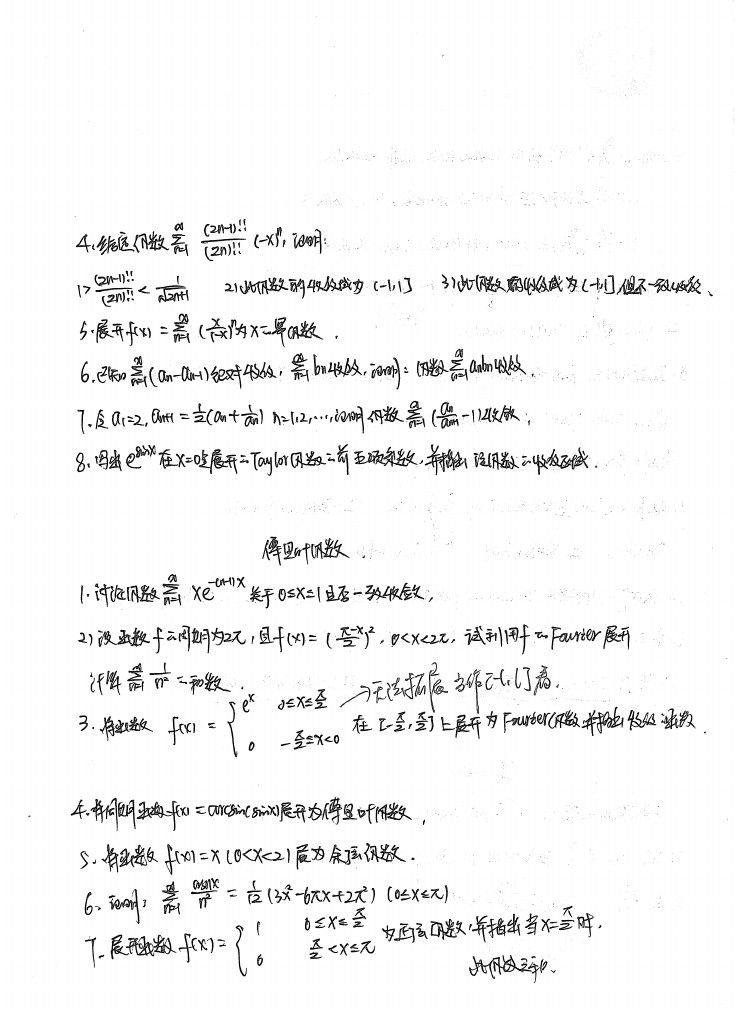 4.给定级数 $\sum_{n=1}^{\infty} \frac{(2n-1)!!}{(2n)!!} (-x)^n$, 证明:
1> $\frac{(2n-1)!!}{(2n)!!} < \frac{1}{\sqrt{2n+1}}$ 2)此级数的收敛域为 (-1,1] 3)此级数的收敛域为 (-1,1] 但不一致收敛、
5.展开 f(x) = $\sum_{n=1}^{\infty} (\frac{x}{1-x})^n$ 为x二幂级数.
6.已知 $\sum_{n=1}^{\infty} (a_n-a_{n-1})$ 绝对收敛, $\sum_{n=1}^{\infty} b_n$ 收敛, 证明: 级数 $\sum_{n=1}^{\infty} a_nb_n$ 收敛.
7.设 $a_1=2, a_{n+1} = \frac{1}{2}(a_n + \frac{1}{a_n})$ n=1,2,…,证明级数 $\sum_{n=1}^{\infty} (\frac{a_n}{a_{n+1}} - 1)$ 收敛.
8. 写出 $e^{\sin x}$ 在x=0点展开二Taylor级数二前五项系数, 并指出该级数二收敛区域.
傅里叶级数.
1.讨论级数 $\sum_{n=1}^{\infty} xe^{-(n-1)x}$ 关于 0≤x≤1 是否一致收敛,
2)设函数f二周期为2π, 且f(x) = $(\frac{π-x}{2})^2$, 0<x<2π, 试利用f二Fourier展开
计算 $\sum_{n=1}^{\infty} \frac{1}{n^2}$ 二和数.
→无法拓展 当作[-l,l]看.
3.将函数 f(x) = { $e^x$ 0≤x≤$\frac{π}{2}$ ; 0 -$\frac{π}{2}$≤x<0 在 [-$\frac{π}{2}$,$\frac{π}{2}$] 上展开为Fourier级数并指出收敛函数
4.将周期函数f(x) = arcsin(sinx)展开为傅里叶级数,
5.将函数 f(x)=x (0<x<2)展为余弦级数.
6.证明: $\sum_{n=1}^{\infty} \frac{\cos nx}{n^2} = \frac{1}{12}(3x^2-6πx+2π^2)$ (0≤x≤π)
7.展开函数f(x)= { 1 0≤x≤$\frac{π}{2}$ ; 0 $\frac{π}{2}$<x≤π 为正弦级数,并指出当x=$\frac{π}{2}$时.
此级数之和.